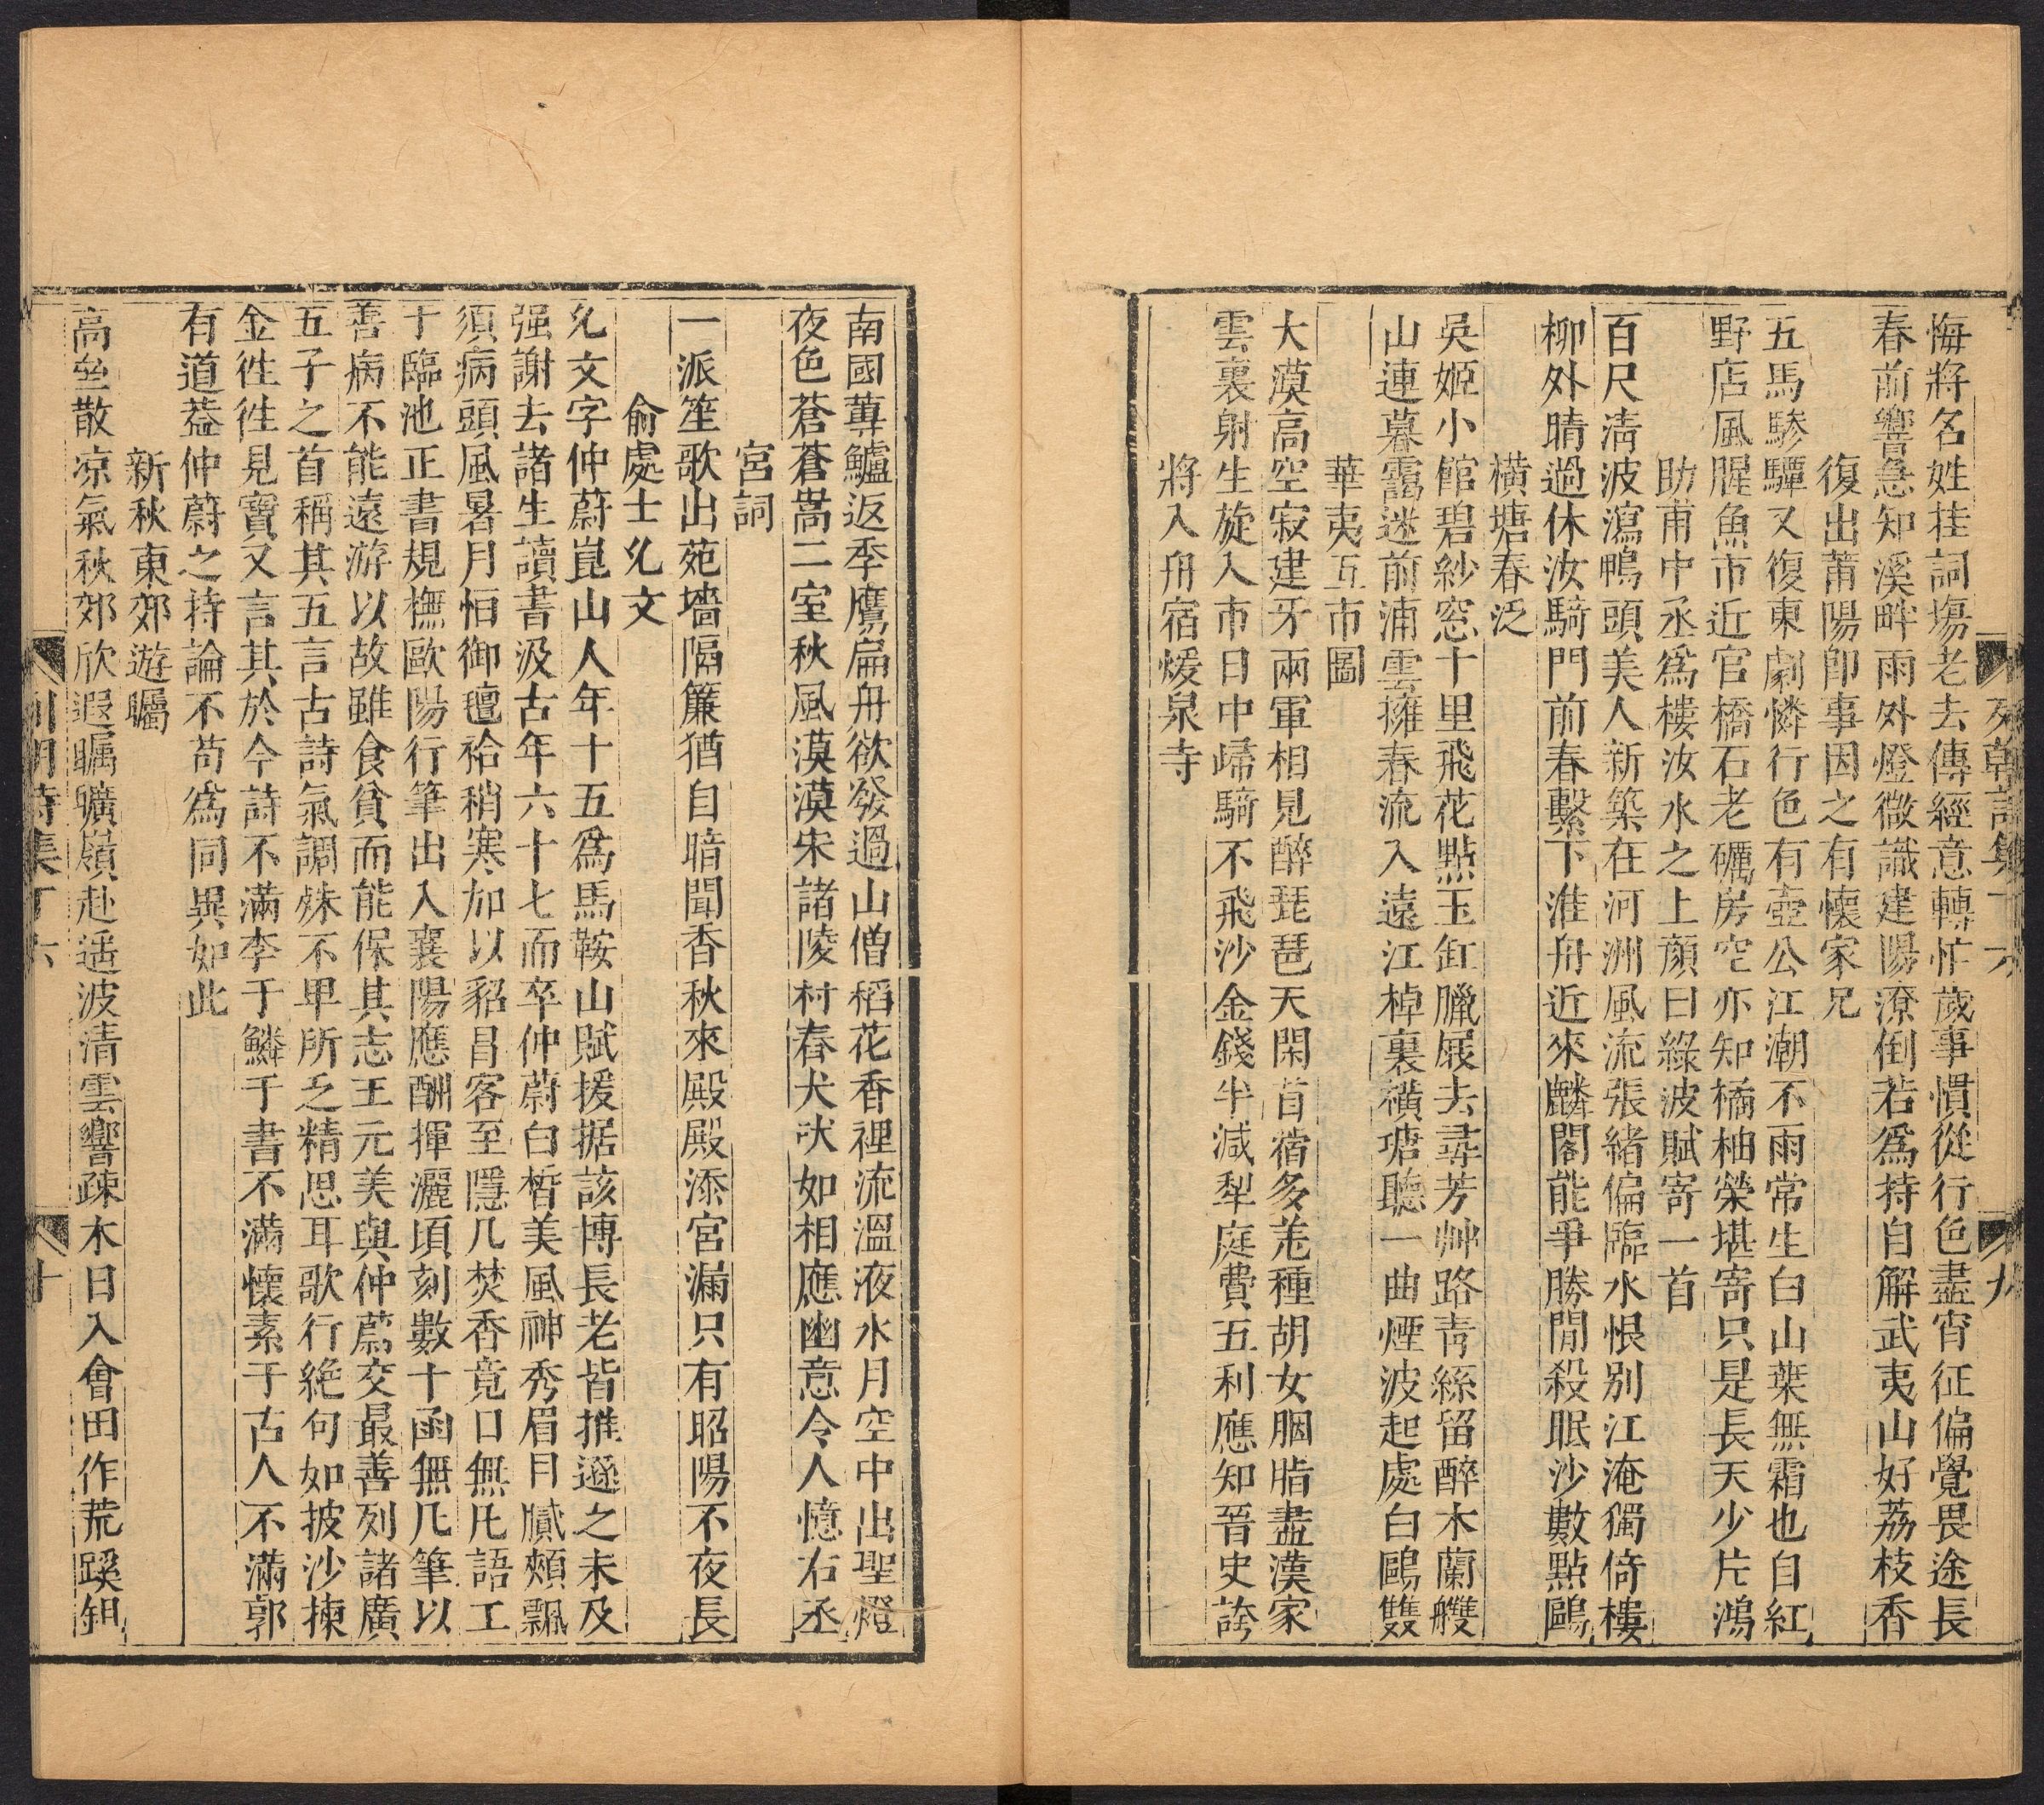 列朝詩集丁六 九
悔將名姓挂詞塲老去傳經意轉忙歲事慣從行色盡宵征偏覺畏途長
春前響急知溪畔雨外燈微識建陽潦倒若爲持自解武夷山好荔枝香
復出莆陽卽事因之有懷家兄
五馬驂驔又復東劇憐行色有壺公江潮不雨常生白山葉無霜也自紅
野店風腥魚市近官橋石老礪房空亦知橘柚榮堪寄只是長天少片鴻
助甫中丞爲樓汝水之上顏曰綠波賦寄一首
百尺淸波瀉鴨頭美人新築在河洲風流張緒偏臨水恨別江淹獨倚樓
柳外晴過休汝騎門前春繫下淮舟近來麟閣能爭勝閒殺眠沙數點鷗
橫塘春泛
吳姬小館碧紗窓十里飛花點玉缸臘屐去尋芳艸路靑絲留醉木蘭艭
山連暮靄迷前浦雲擁春流入遠江棹裏橫塘聽一曲煙波起處白鷗雙
華夷互市圖
大漠高空寂建牙兩軍相見醉琵琶天閑苜蓿多羌種胡女胭脂盡漢家
雲裏射生旋入市日中歸騎不飛沙金錢半減犁庭費五利應知晉史誇
將入舟宿煖泉寺
南國蓴鱸返季鷹扁舟欲發過山僧稻花香裡流溫液水月空中出聖燈
夜色蒼蒼嵩二室秋風漠漠宋諸陵村舂犬吠如相應幽意令人憶右丞
宮詞
一派笙歌出苑墻隔簾猶自暗聞香秋來殿殿添宮漏只有昭陽不夜長
俞處士允文
允文字仲蔚崑山人年十五爲馬鞍山賦援据該博長老皆推遜之未及
强謝去諸生讀書汲古年六十七而卒仲蔚白晳美風神秀眉目膩頰飄
須病頭風暑月恒御氊袷稍寒加以貂昌客至隱几焚香竟口無凡語工
于臨池正書規橅歐陽行筆出入襄陽應酬揮灑頃刻數十函無凡筆以
善病不能遠游以故雖食貧而能保其志王元美與仲蔚交最善列諸廣
五子之首稱其五言古詩氣調殊不卑所乏精思耳歌行絶句如披沙揀
金徃徃見寶又言其於今詩不滿李于鱗于書不滿懷素于古人不滿郭
有道葢仲蔚之持論不苟爲同異如此
新秋東郊遊矚
高壘散凉氣秋郊欣遐矚曠巘赴遥波清雲響疎木日入會田作荒蹊鉏
列朝詩集丁六 十